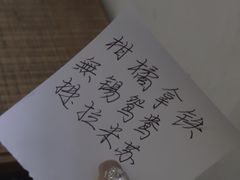 柑橘拿铁
無锡鸳鸯
提拉米苏